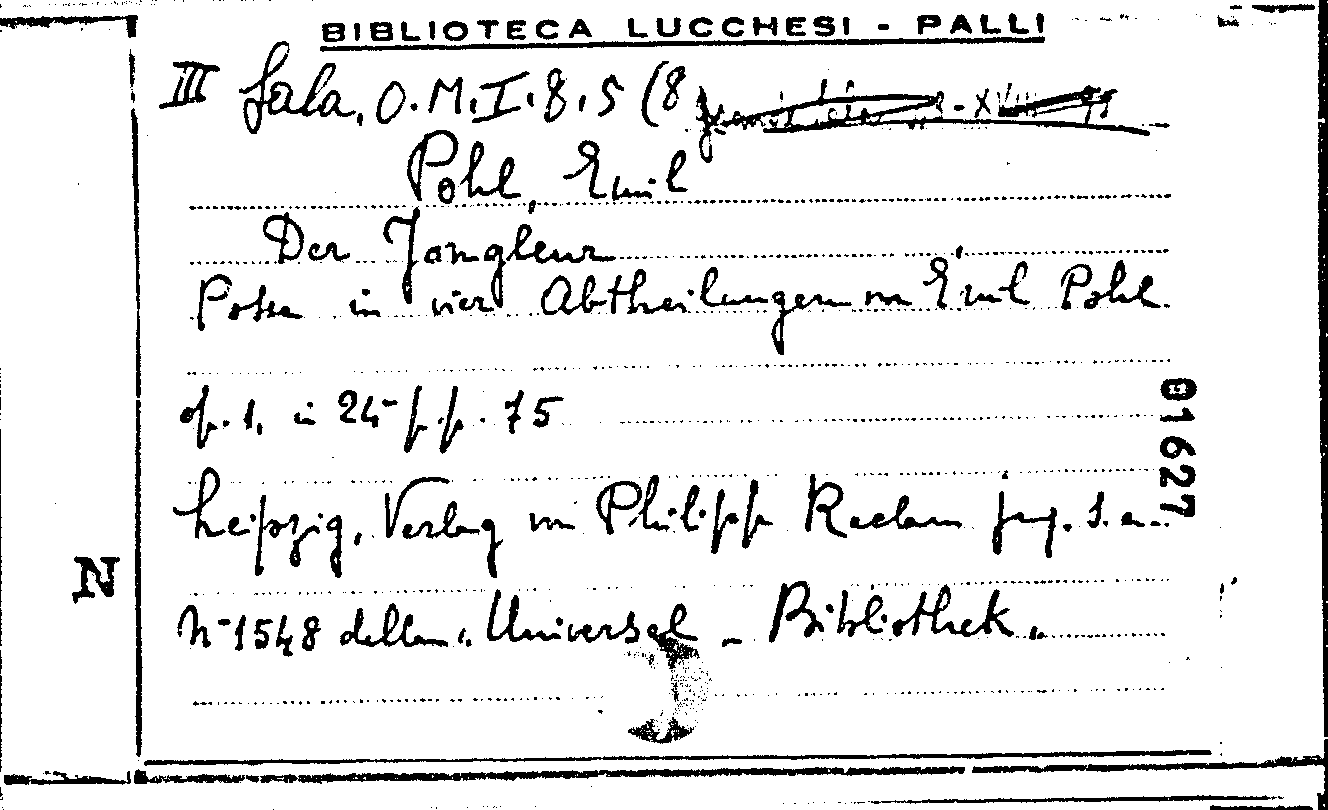 BIBLIOTECA LUCCHESI - PALLI
III Sala. O.M.I.8.5 (8
Pohl, Emil
Der Jongleur
Posse in vier Abtheilungen von Emil Pohl
op. 1. in 24° p.p. 75
01627
Leipzig, Verlag von Philipp Reclam jun. s.a.
N° 1548 della „Universal - Bibliothek„
N